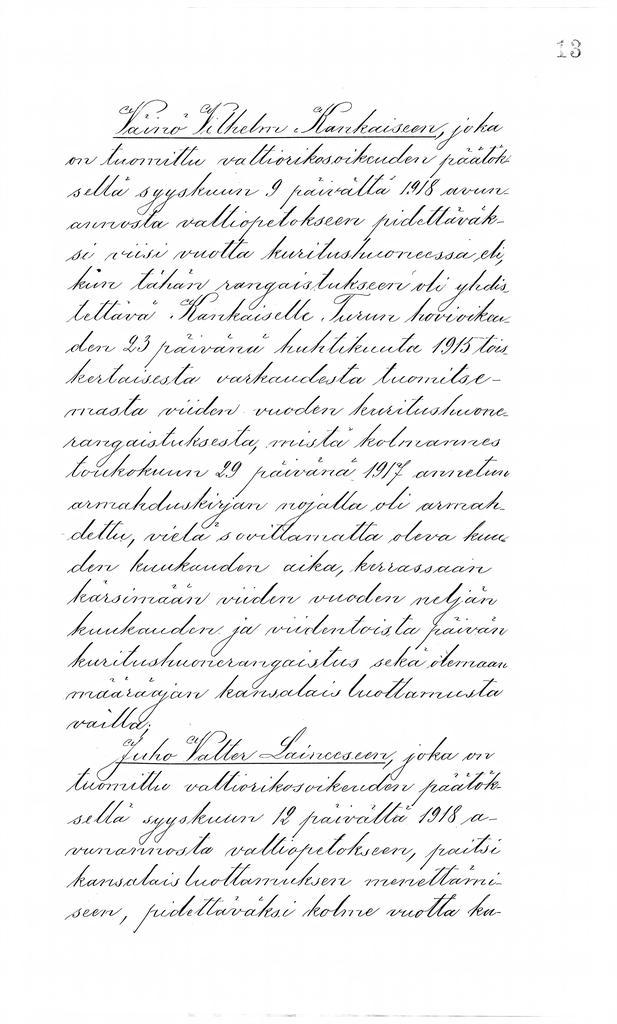 13
Väinö Vilhelm Kankaiseen, joka
on tuomittu valtiorikosoikeuden päätök-
sellä syyskuun 9 päivältä 1918 avun-
annosta valtiopetokseen pidettäväk-
si viisi vuotta kuritushuoneessa, eli,
kun tähän rangaistukseen oli yhdis
tettävä Kankaiselle Turun hovioikeu-
den 23 päivänä huhtikuuta 1915 tois
kertaisesta varkaudesta tuomitse-
masta viiden vuoden kuritushuone-
rangaistuksesta, mistä kolmannes
toukokuun 29 päivänä 1917 annetun
armahduskirjan nojalla oli armah-
dettu, vielä sovittamatta oleva kuu-
den kuukauden aika, kerrassaan
kärsimään viiden vuoden neljän
kuukauden ja viidentoista päivän
kuritushuonerangaistus sekä olemaan
määräajan kansalaisluottamusta
vailla;
Juho Valter Laineeseen, joka on
tuomittu valtiorikosoikeuden päätök-
sellä syyskuun 12 päivältä 1918 a-
vunannosta valtiopetokseen, paitsi
kansalaisluottamuksen menettämi-
seen, pidettäväksi kolme vuotta ku-